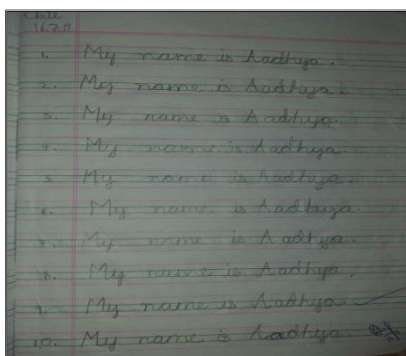 Date
16.7.19
1. My name is Aadhya.
2. My name is Aadhya.
3. My name is Aadhya.
4. My name is Aadhya.
5. My name is Aadhya.
6. My name is Aadhya
7. My name is Aadhya.
8. My name is Aadhya.
9. My name is Aadhya
10. My name is Aadhya